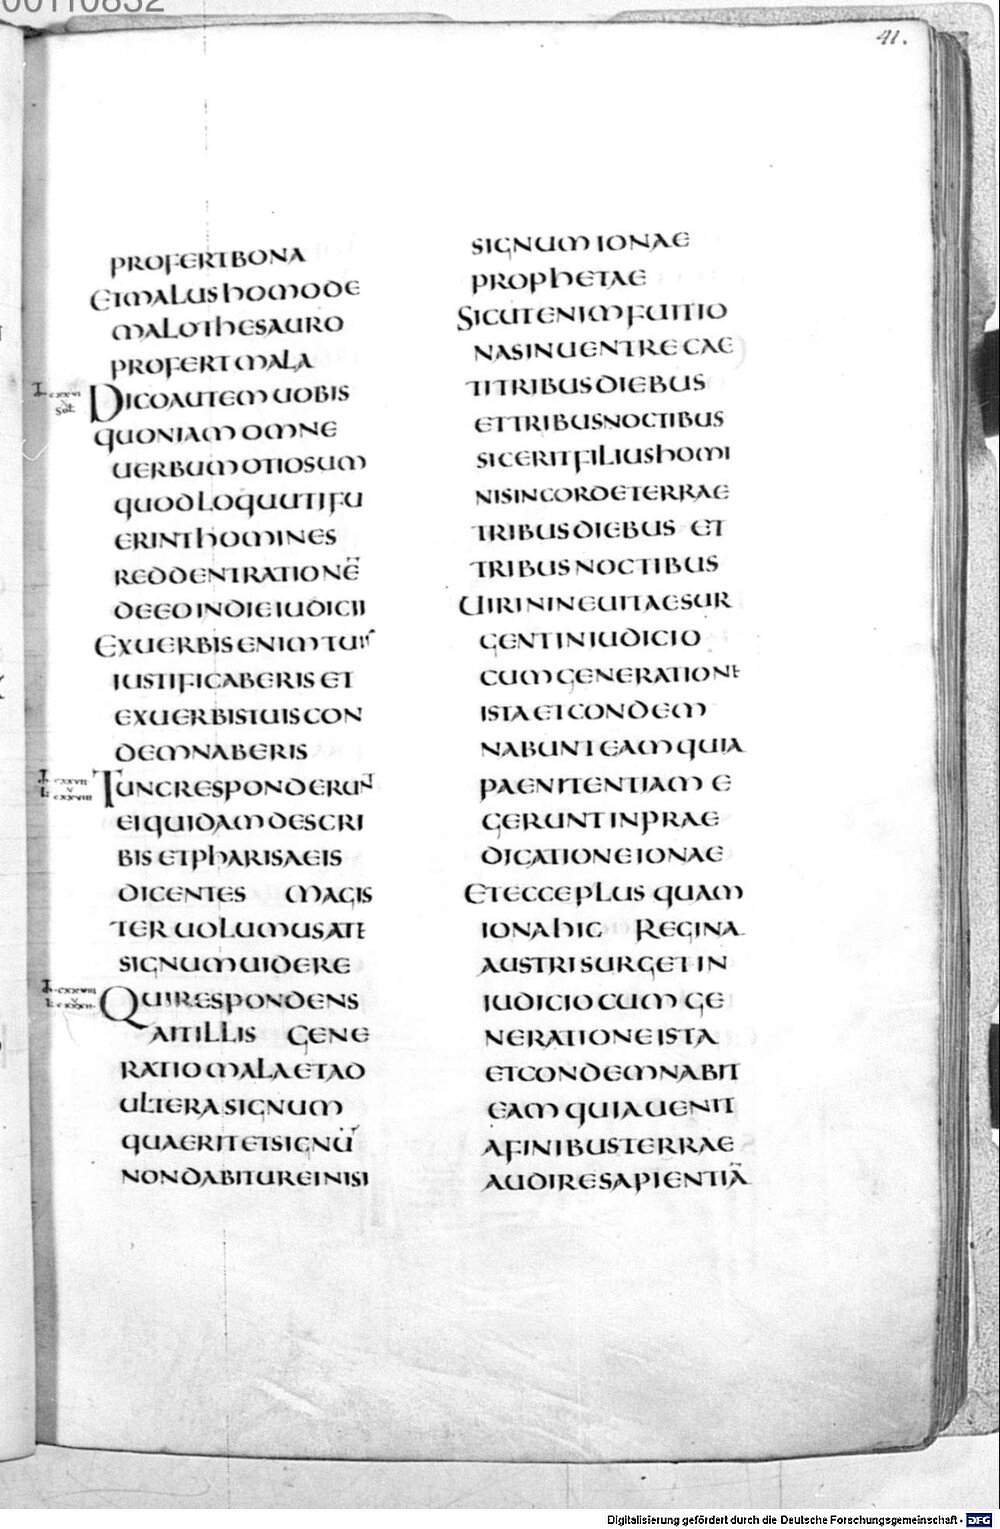 00110832
41.
PROFERT BONA
ET MALUS HOMO DE
MALO THESAURO
PROFERT MALA
DICO AUTEM UOBIS
QUONIAM OMNE
UERBUM OTIOSUM
QUOD LOQUUTI FU
ERINT HOMINES
REDDENT RATIONE̅
DE EO IN DIE IUDICII
EX UERBIS ENIM TUIS
IUSTIFICABERIS ET
EX UERBIS TUIS CON
DEMNABERIS
TUNC RESPONDERUNT
EI QUIDAM DE SCRI
BIS ET PHARISAEIS
DICENTES MAGIS
TER UOLUMUS A TE
SIGNUM UIDERE
QUI RESPONDENS
AIT ILLIS GENE
RATIO MALA ET AD
ULTERA SIGNUM
QUAERIT ET SIGNU̅
NON DABITUR EI NISI
SIGNUM IONAE
PROPHETAE
SICUT ENIM FUIT IO
NAS IN UENTRE CAE
TI TRIBUS DIEBUS
ET TRIBUS NOCTIBUS
SIC ERIT FILIUS HOMI
NIS IN CORDE TERRAE
TRIBUS DIEBUS ET
TRIBUS NOCTIBUS
UIRI NINEUITAE SUR
GENT IN IUDICIO
CUM GENERATIONE
ISTA ET CONDEM
NABUNT EAM QUIA
PAENITENTIAM E
GERUNT IN PRAE
DICATIONE IONAE
ET ECCE PLUS QUAM
IONA HIC REGINA
AUSTRI SURGET IN
IUDICIO CUM GE
NERATIONE ISTA
ET CONDEMNABIT
EAM QUIA UENIT
A FINIBUS TERRAE
AUDIRE SAPIENTIA̅
Digitalisierung gefördert durch die Deutsche Forschungsgemeinschaft - DFG